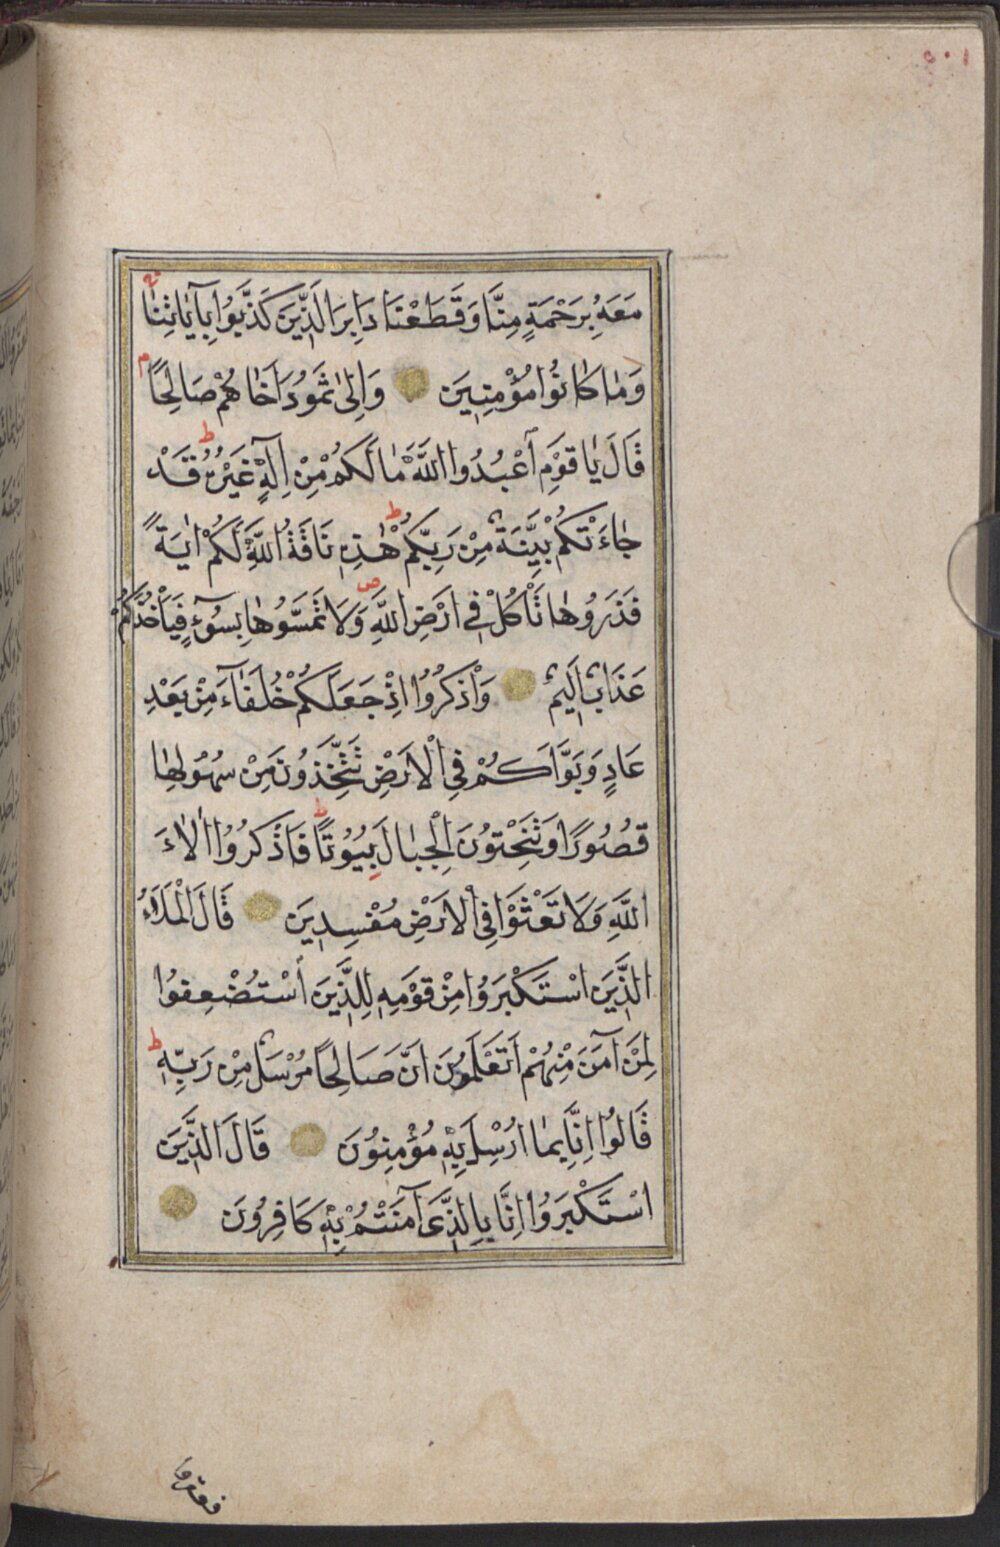 ١٠٥
مَعَهُ بِرَحْمَةٍ مِنَّا وَقَطَعْنَا دَابِرَ الَّذِينَ كَذَّبُوا بِآيَاتِنَا
وَمَا كَانُوا مُؤْمِنِينَ وَإِلَىٰ ثَمُودَ أَخَاهُمْ صَالِحًا م
قَالَ يَا قَوْمِ اعْبُدُوا اللَّهَ مَا لَكُمْ مِنْ اِلٰهٍ غَيْرُهُ ط قَدْ
جَاءَتْكُمْ بَيِّنَةٌ مِنْ رَبِّكُمْ ط هٰذِهِ نَاقَةُ اللَّهِ لَكُمْ اٰيَةً
فَذَرُوهَا تَأْكُلْ فِي اَرْضِ اللَّهِ ص وَلَا تَمَسُّوهَا بِسُوٓءٍ فَيَأْخُذَكُمْ
عَذَابٌ اَلِيمٌ وَاْذكُرُوا اِذْ جَعَلَكُمْ خُلَفَآءَ مِنْ بَعْدِ
عَادٍ وَبَوَّاَكُمْ فِي الْاَرْضِ تَتَّخِذُونَ مِنْ سُهُولِهَا
قُصُورًا وَتَنْحِتُونَ الْجِبَالَ بُيُوتًا ط فَاذْكُرُوا اٰلَاءَ
اللَّهِ وَلَا تَعْثَوْا فِي الْاَرْضِ مُفْسِدِينَ قَالَ الْمَلَاُ
الَّذِينَ اسْتَكْبَرُوا مِنْ قَوْمِهِ لِلَّذِينَ اسْتُضْعِفُوا
لِمَنْ آمَنَ مِنْهُمْ اَتَعْلَمُونَ اَنَّ صَالِحًا مُرْسَلٌ مِنْ رَبِّهِ ط
قَالُوا اِنَّا بِمَا اُرْسِلَ بِهِ مُؤْمِنُونَ قَالَ الَّذِينَ
اسْتَكْبَرُوا اِنَّا بِالَّذِي آمَنْتُمْ بِهِ كَافِرُونَ
فعقروا